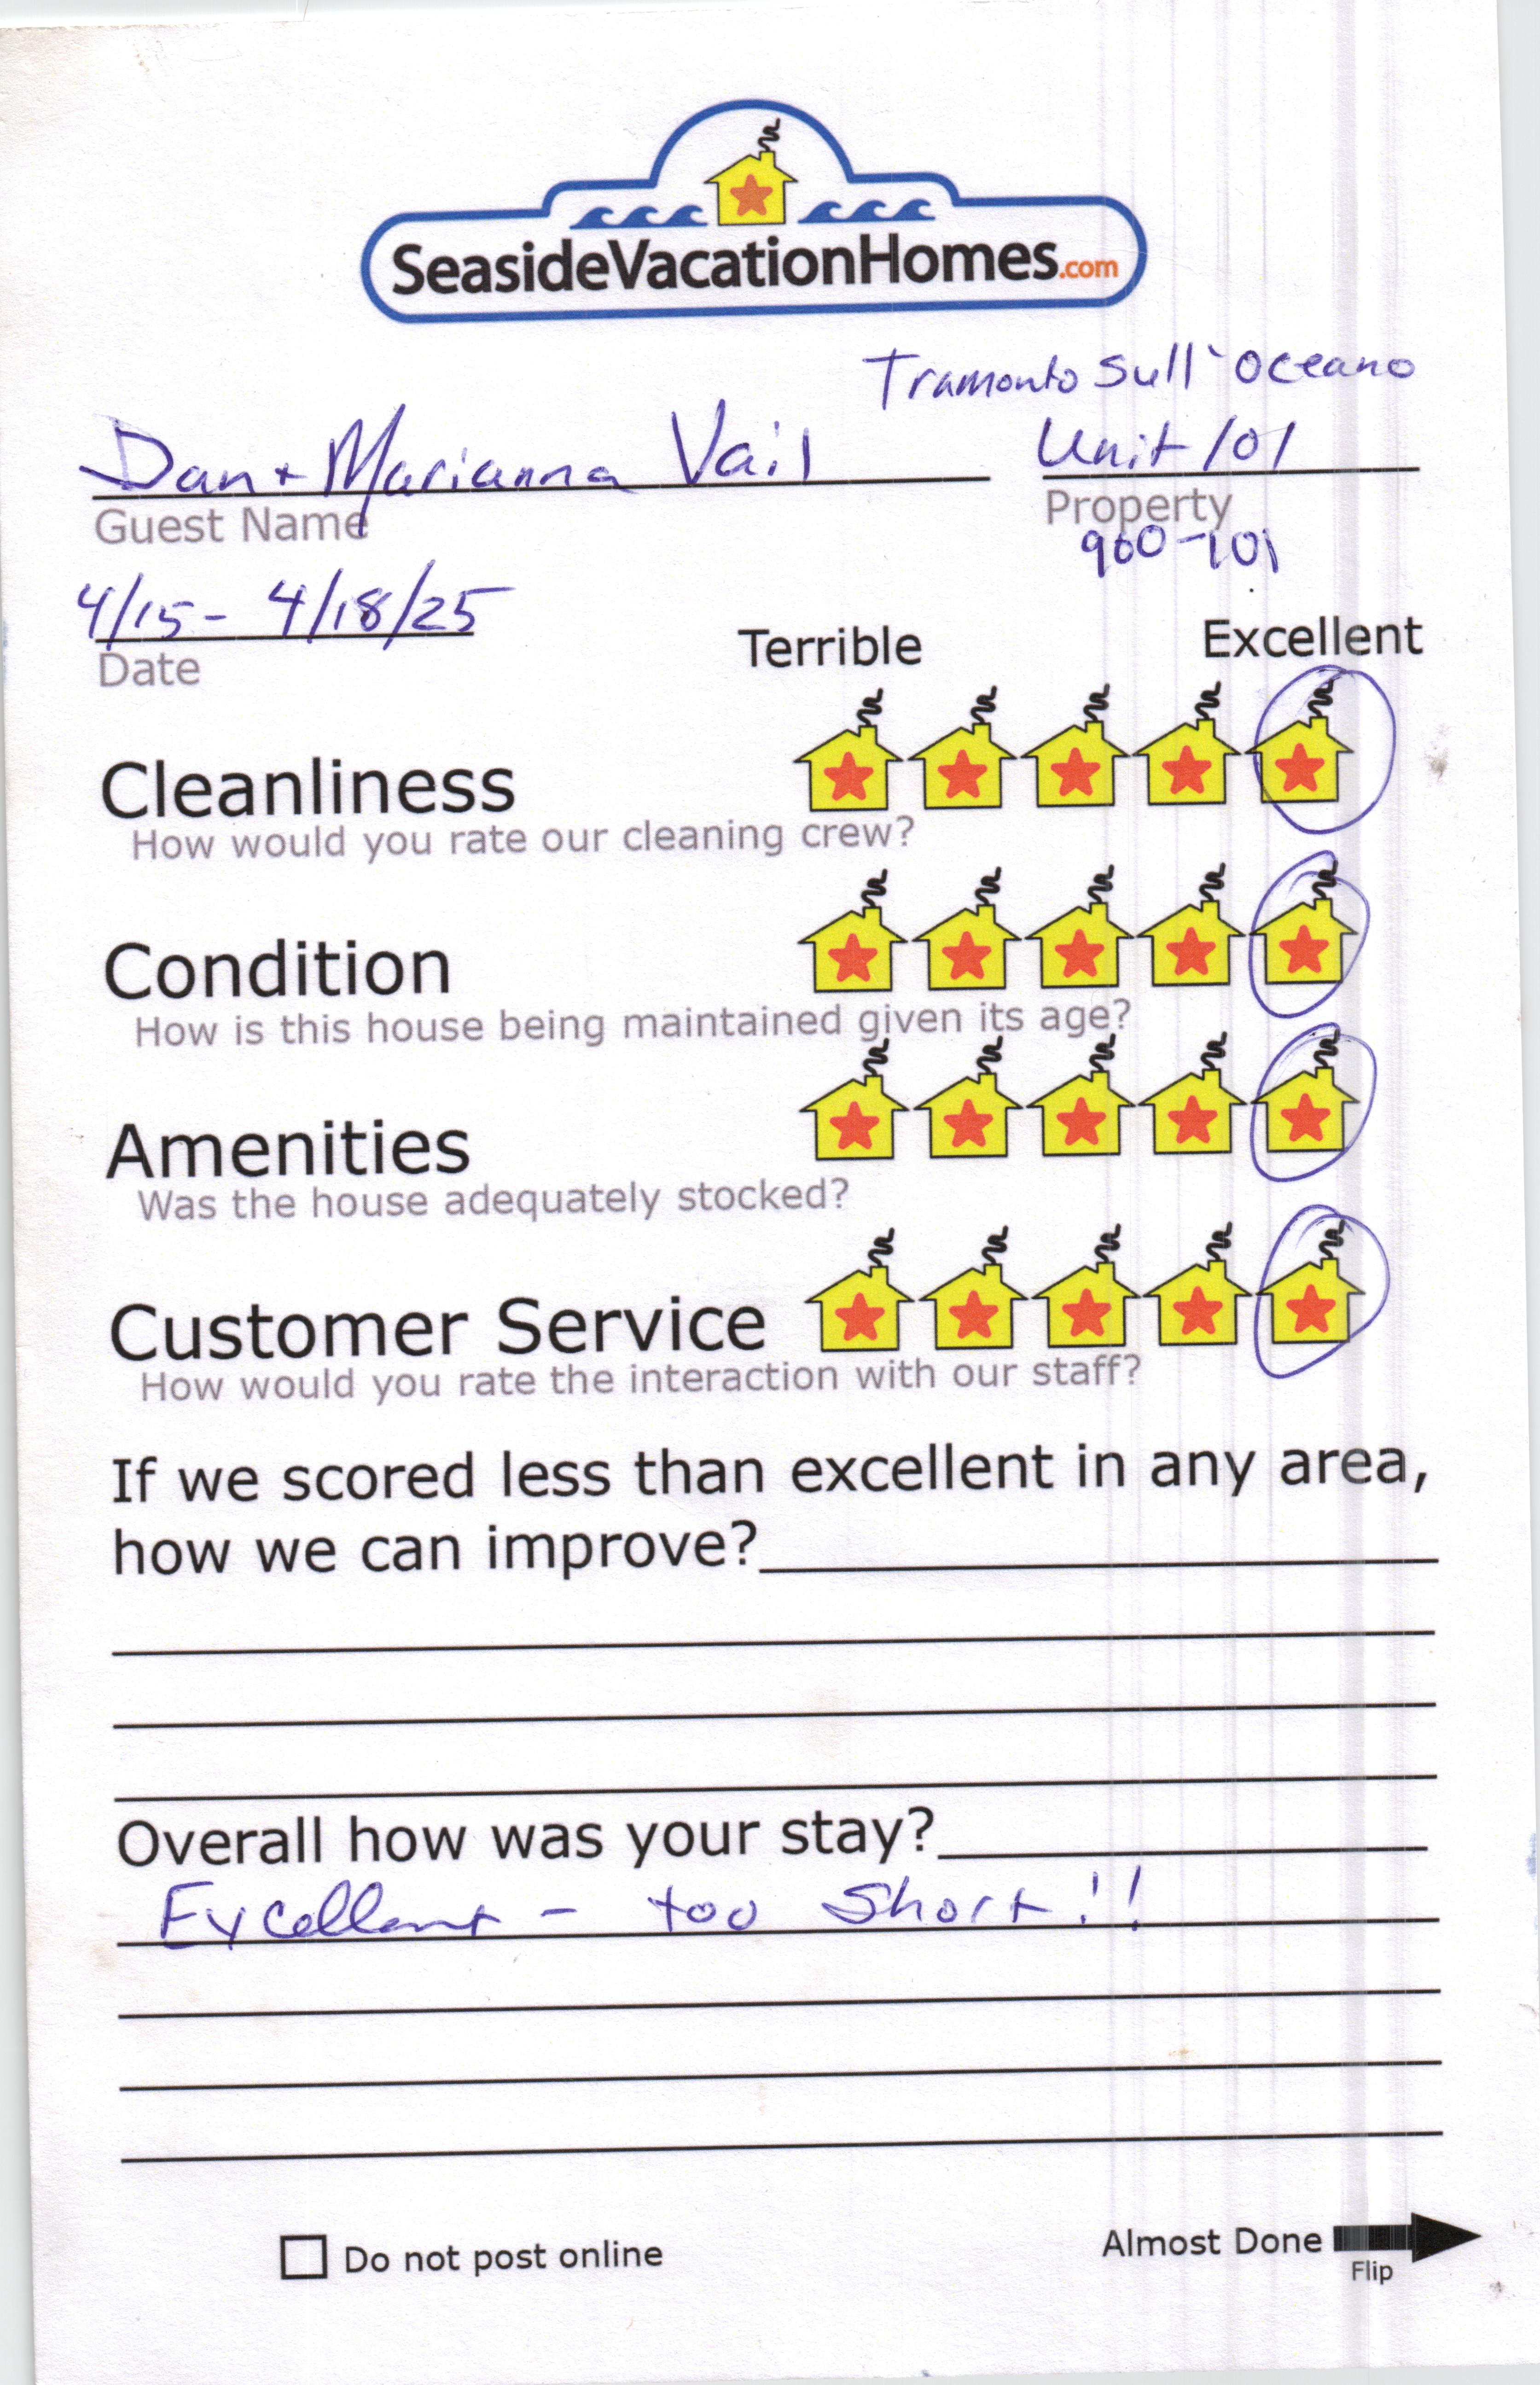 SeasideVacationHomes.com
Tramonto Sull'Oceano
Dan + Marianna Vail
Unit 101
Guest Name
Property
900-101
4/15 - 4/18/25
Date
Terrible
Excellent
Cleanliness
How would you rate our cleaning crew?
Condition
How is this house being maintained given its age?
Amenities
Was the house adequately stocked?
Customer Service
How would you rate the interaction with our staff?
If we scored less than excellent in any area,
how we can improve?
Overall how was your stay?
Excellent - too short!!
Do not post online
Almost Done
Flip